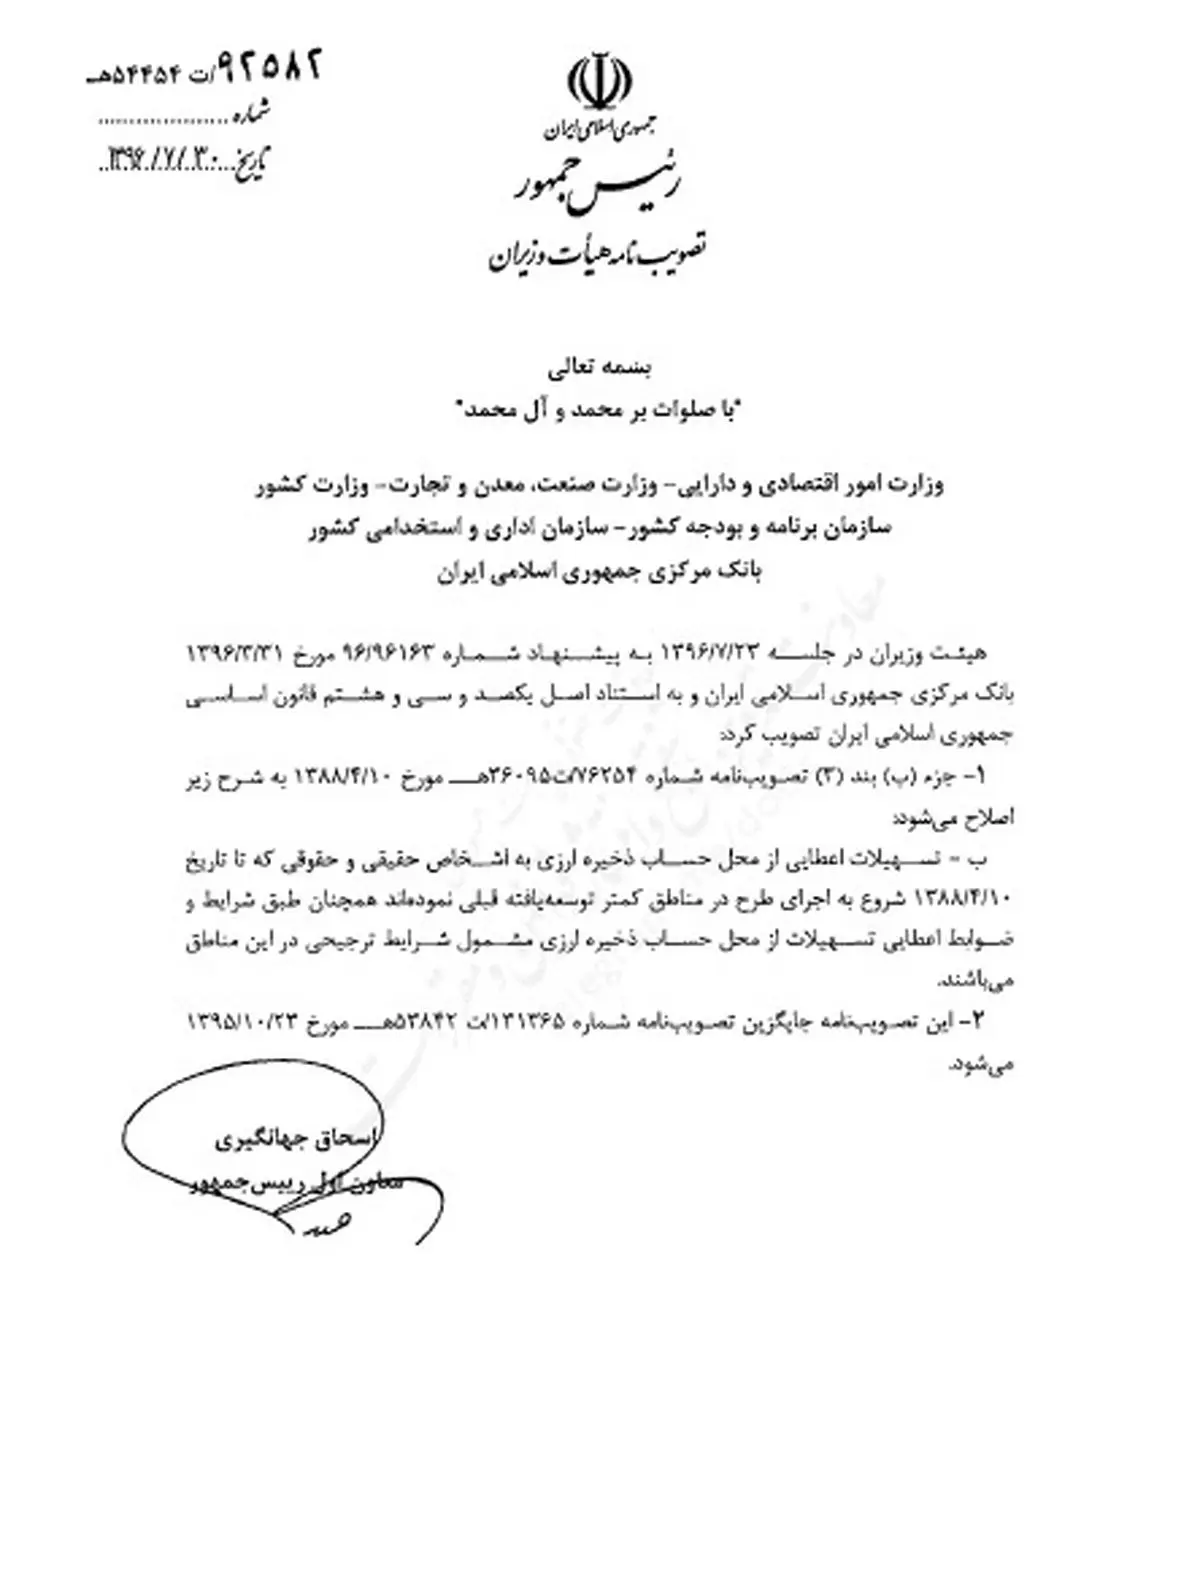 ۹۲۵۸۲/ت ۵۴۴۵۴هـ
شماره ....................
تاریخ ۱۳۹۶/۷/۳۰
جمهوری اسلامی ایران
رئیس جمهور
تصویب نامه هیأت وزیران
بسمه تعالی
"با صلوات بر محمد و آل محمد"
وزارت امور اقتصادی و دارایی- وزارت صنعت، معدن و تجارت- وزارت کشور
سازمان برنامه و بودجه کشور- سازمان اداری و استخدامی کشور
بانک مرکزی جمهوری اسلامی ایران
هیئت وزیران در جلسه ۱۳۹۶/۷/۲۳ به پیشنهاد شماره ۹۶/۹۶۱۶۳ مورخ ۱۳۹۶/۳/۳۱
بانک مرکزی جمهوری اسلامی ایران و به استناد اصل یکصد و سی و هشتم قانون اساسی
جمهوری اسلامی ایران تصویب کرد:
۱- جزء (ب) بند (۳) تصویب‌نامه شماره ۷۶۲۵۴/ت۳۶۰۹۵هـ مورخ ۱۳۸۸/۴/۱۰ به شرح زیر
اصلاح می‌شود:
ب - تسهیلات اعطایی از محل حساب ذخیره ارزی به اشخاص حقیقی و حقوقی که تا تاریخ
۱۳۸۸/۴/۱۰ شروع به اجرای طرح در مناطق کمتر توسعه‌یافته قبلی نموده‌اند همچنان طبق شرایط و
ضوابط اعطایی تسهیلات از محل حساب ذخیره ارزی مشمول شرایط ترجیحی در این مناطق
می‌باشند.
۲- این تصویب‌نامه جایگزین تصویب‌نامه شماره ۱۳۱۳۶۵/ت ۵۳۸۴۲هـ مورخ ۱۳۹۵/۱۰/۲۳
می‌شود.
اسحاق جهانگیری
معاون اول رییس‌جمهور